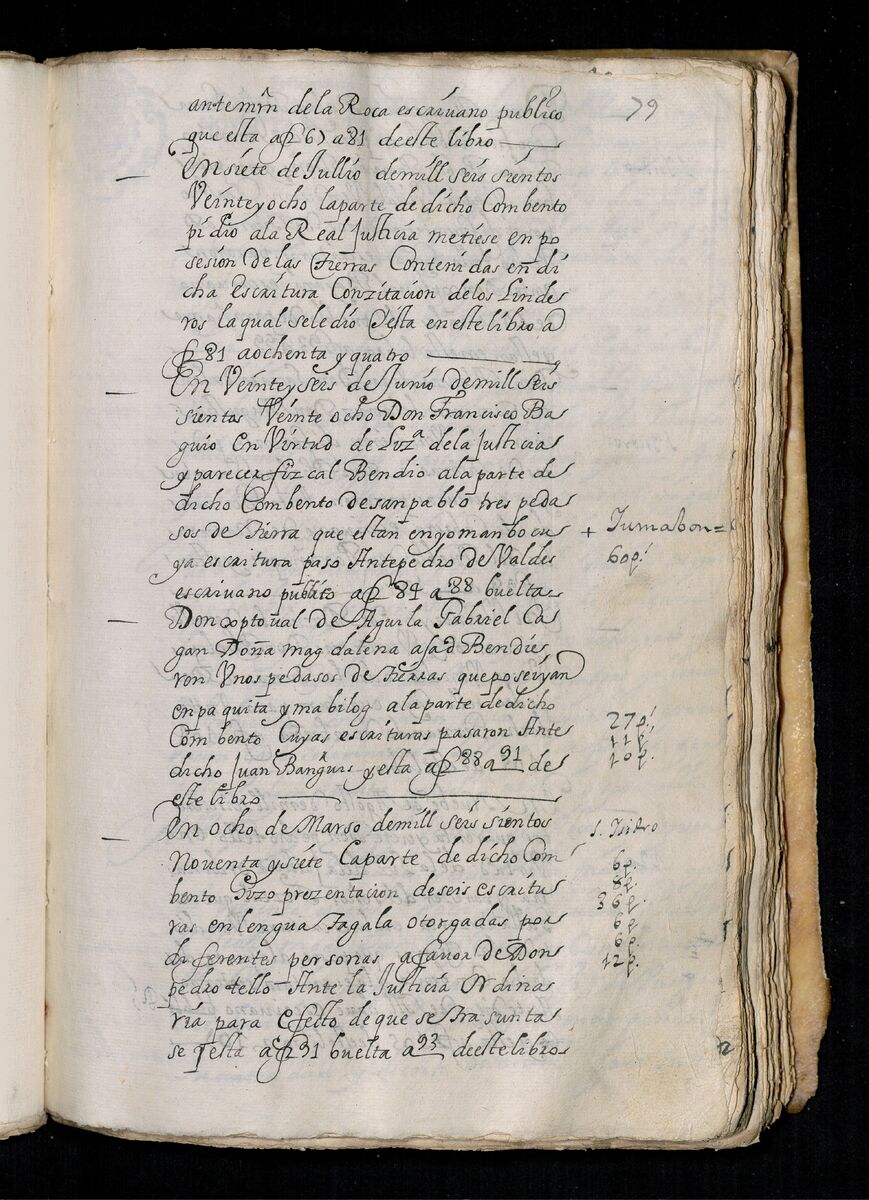 79
antemȷ̃n dela Roca escriuano publico
que esta afˢ 67 a 81 deeste libro
En siete de Jullio demill seis sientos
Veinteyocho laparte de dicho Combento
pidio ala Real Justicia metiese en po
sesion de las Tierras Contenidas en di
cha Escritura Conzitacion delos Linde
ros la qual seledio Yesta en este libro a
fˢ 81 aochenta y quatro
En Veinteyseis de Junio demill seis
sientos Veinte ocho Don Francisco Ba
guio en Virtud de Lizª dela Justicia
y parecer fizcal Bendio ala parte de
dicho Combento desanpablo tres peda
sos de Tierra que estan enyomanbo cu
ya escritura paso Antepedro de Valdes
escriuano publico afˢ 84 a 88 buelta
+ Jumabon=
60p.
Don xptoual de Aguila Gabriel Ca
gan Doña magdalena asad Bendie
ron Unos pedasos de Tierras queposeiyan
enpaquita ymabilog alaparte dedicho
Combento Cuyas escrituras pasaron Ante
dicho Juan yesta afˢ 88 a 91 de
este libro
27p.
11p.
10p.
En ocho de Marso demill seis sientos
Noventa ysiete laparte de dicho Com
bento hizo prezentacion deseis escritu
ras enlengua Tagala otorgadas por
diferentes personas afauor de Don
pedro tello Ante la Justicia Ordina
ria para efecto deque se trasunta
se Yesta afˢ 91 buelta a 93 deeste libro
S. Isidro
6p.
8p.
36p.
6p
6p.
12p.